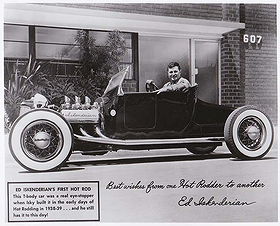 607
Iskenderian
ED ISKENDERIAN'S FIRST HOT ROD
This T-body car was a real eye-stopper
when Isky built it in the early days of
Hot Rodding in 1938-39 . . . and he still
has it to this day!
Best wishes from one Hot Rodder to another
Ed Iskenderian